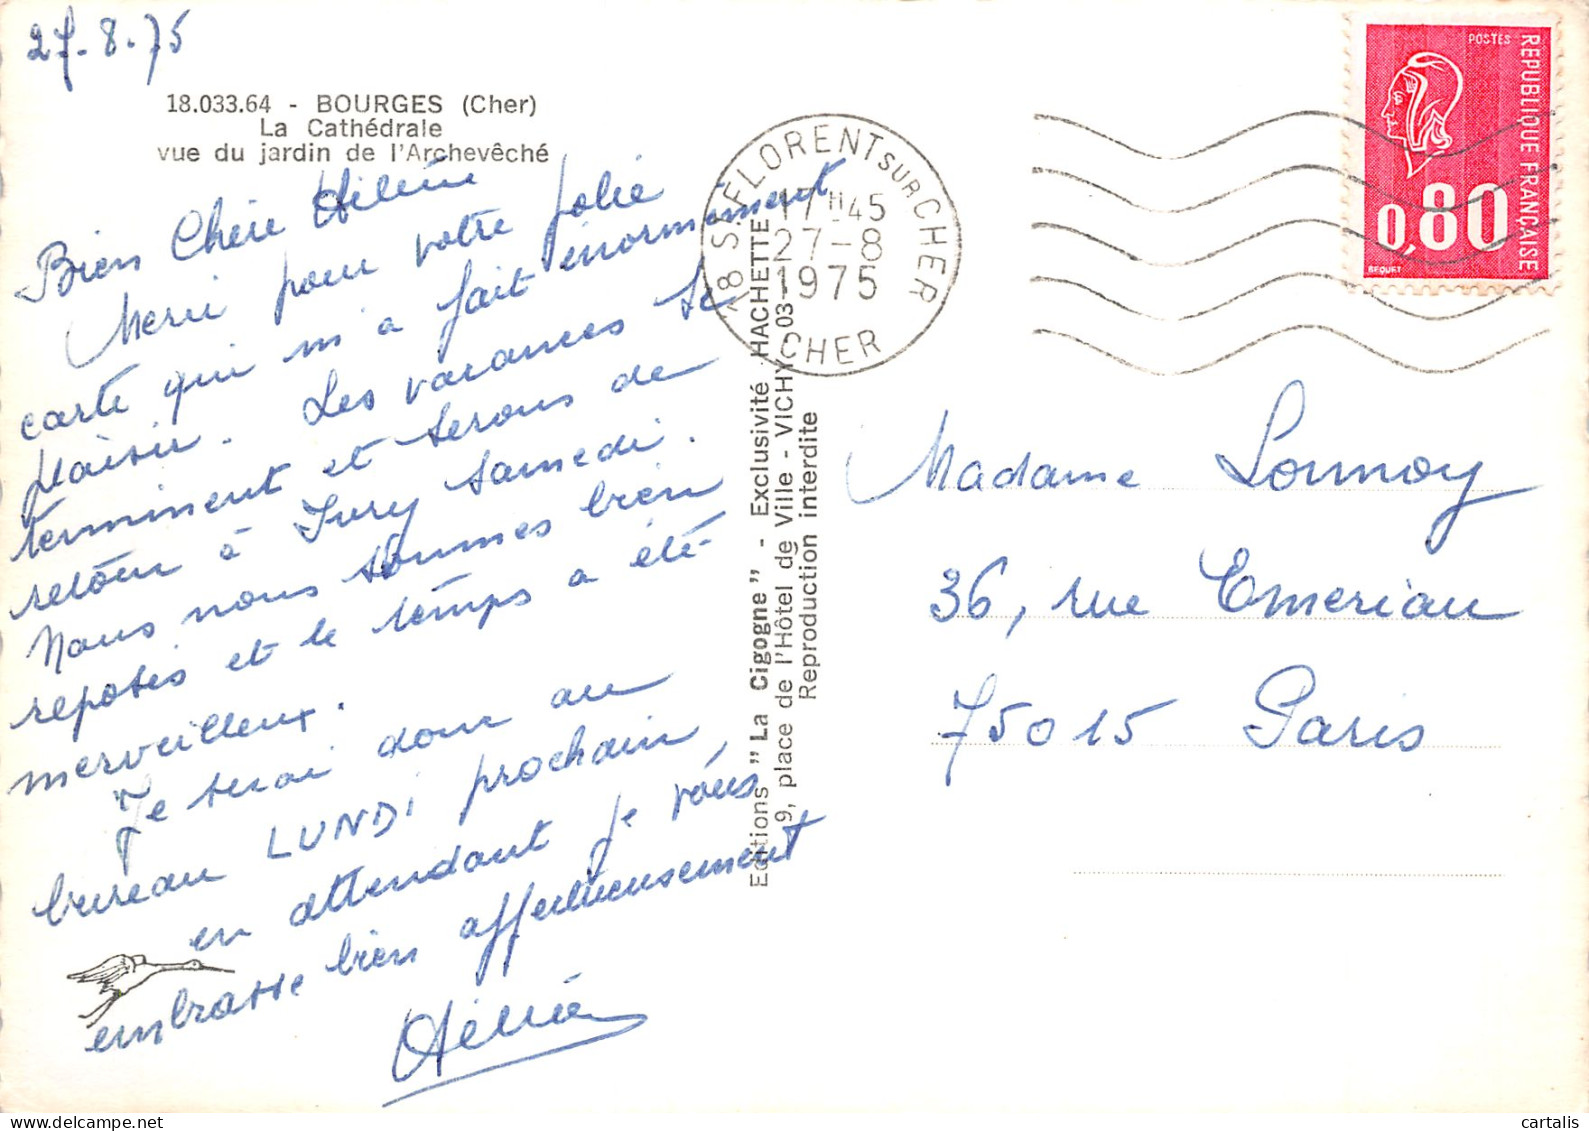 27-8-75
18.033.64 - BOURGES (Cher)
La Cathédrale
vue du jardin de l'Archevêché
Bien Chère Hélène
Merci pour votre jolie
carte qui m'a fait énormément
plaisir. Les vacances se
terminent et serons de
retour à Ivry samedi.
Nous nous sommes bien
reposés et le temps a été
merveilleux.
Je serai donc au
bureau LUNDi prochain,
en attendant je vous
embrasse bien affectueusement
Editions "La Cigogne" - Exclusivité HACHETTE
9, place de l'Hôtel de Ville - VICHY 03
Reproduction interdite
18 ST FLORENT SUR CHER
17H45
27-8
1975
CHER
POSTES
REPUBLIQUE FRANÇAISE
0,80
BEQUET
Madame Lonnoy
36, rue Emeriau
75015 Paris
cartalis